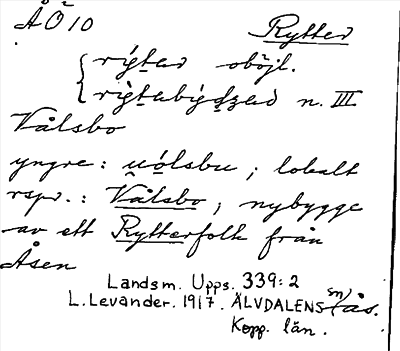 ÅÖ 10 Rytter
rýtar oböjl.
rýtabýdzad n. III
Vålsbo
yngre: u̯ólsbu; lokalt
rspr.: Vålsbo, nybygge
av ett Rytterfolk från
Åsen
Landsm. Upps. 339:2
L. Levander. 1917. ÄLVDALENS sn, Ås.
Kopp. län.